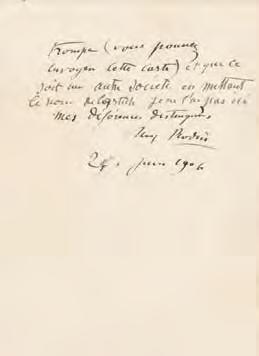 trompe (vous pouvez
envoyer cette carte) et que ce
soit une autre société en mettant
le nom de l'artiste je ne l'ai pas
mes déférences distinguées
Aug Rodin
24 juin 1906